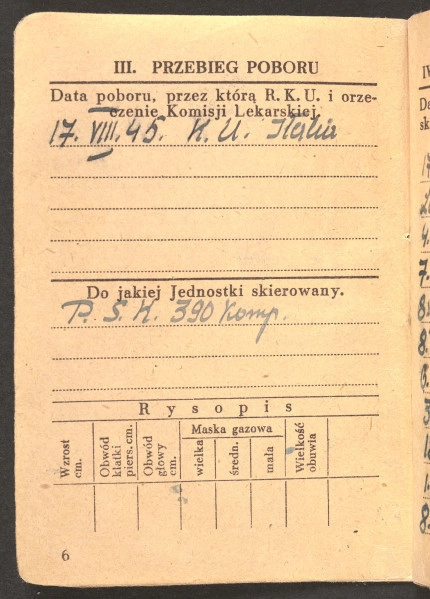 III. PRZEBIEG POBORU
Data poboru, przez którą R. K. U. i orze-
czenie Komisji Lekarskiej.
17. VIII. 45. K. U. Italia
Do jakiej Jednostki skierowany.
P. S. K. 390 Komp.
Rysopis
Wzrost cm.
Obwód klatki piers. cm.
Obwód głowy cm.
Maska gazowa
wielka
średn.
mała
Wielkość obuwia
6